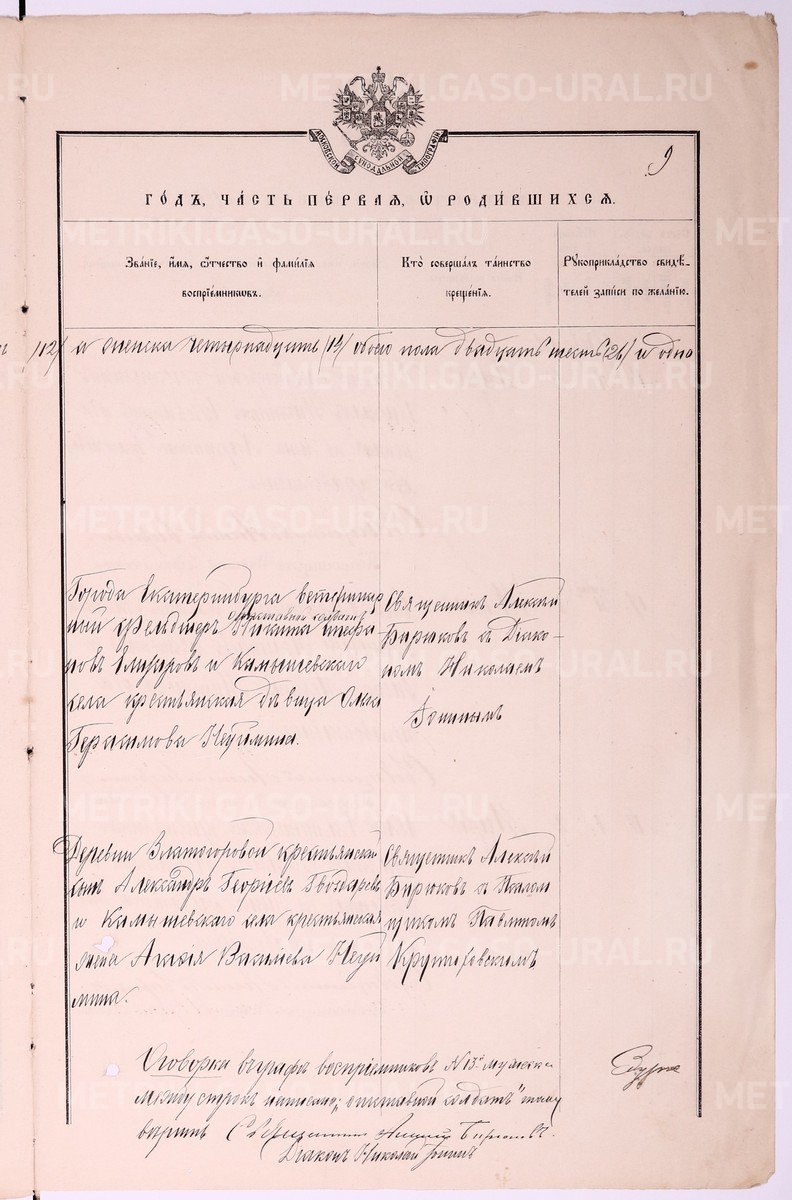 METRIKI.GASO-URAL.RU
МОСКОВСКОЙ СѴНОДАЛЬНОЙ ТИПОГРАФІИ
9
ГО́ДЪ, ЧА́СТЬ ПЕ́РВАЯ, Ѡ҆ РОДИ́ВШИХСЯ.
Зва́нїе, и҆́мя, ѻ҆́тчество и҆ фами́лїя
воспрїе́мникѡвъ.
Кто̀ соверша́лъ та́инство
креще́нїя.
Рꙋкоприкла́дство свидѣ́-
телей за́писи по жела́нїю.
/12/ и женска четырнадцать /14/ обоего пола двадцать шесть (26) и одно
Города Екатеринбурга ветеринар
ный фельдшеръ Никита
отставной солдатъ
новъ и Камышевскаго
села крестьянская дѣвица Ольга
Герасимова Неуймина.
Священникъ Алексѣй
Бирюковъ съ Діако-
номъ Николаемъ
Деревни Златогоровой крестьянскій
сынъ Александръ Георгіевъ Гвоздаревъ
и Камышевскаго села крестьянская
жена Агафія Василіева Неуй
мина.
Священникъ Алексѣй
Бирюковъ съ Псалом
щикомъ Павлиномъ
Оговорка въ графѣ воспріемниковъ №13й мужска
между строкъ написано: „отставной солдатъ" тому
вѣрить Священникъ Алексѣй Бирюковъ.
Діаконъ Николай